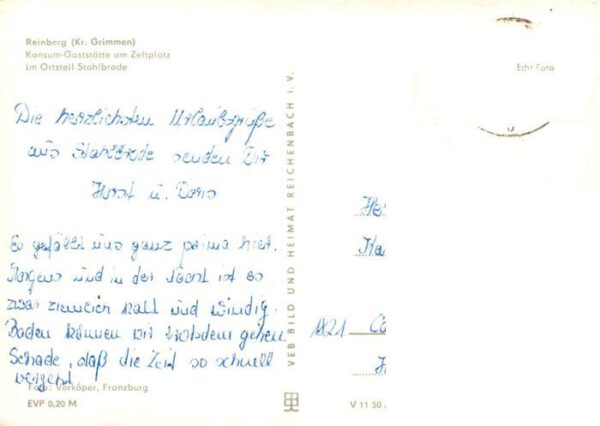 Reinberg (Kr. Grimmen)
Konsum-Gaststätte am Zeltplatz
im Ortsteil Stahlbrode
Echt Foto
Die herzlichsten Urlaubsgrüße
aus Stahlbrode senden Dir
Horst u. Doris
Es gefällt uns ganz prima hier.
Morgens und in der Nacht ist es
zwar ziemlich kalt und windig.
Baden können wir trotzdem gehen.
Schade, daß die Zeit so schnell
vergeht
Foto: Vorköper, Franzburg
EVP 0,20 M
VEB BILD UND HEIMAT REICHENBACH I. V.
1821
V 11 50